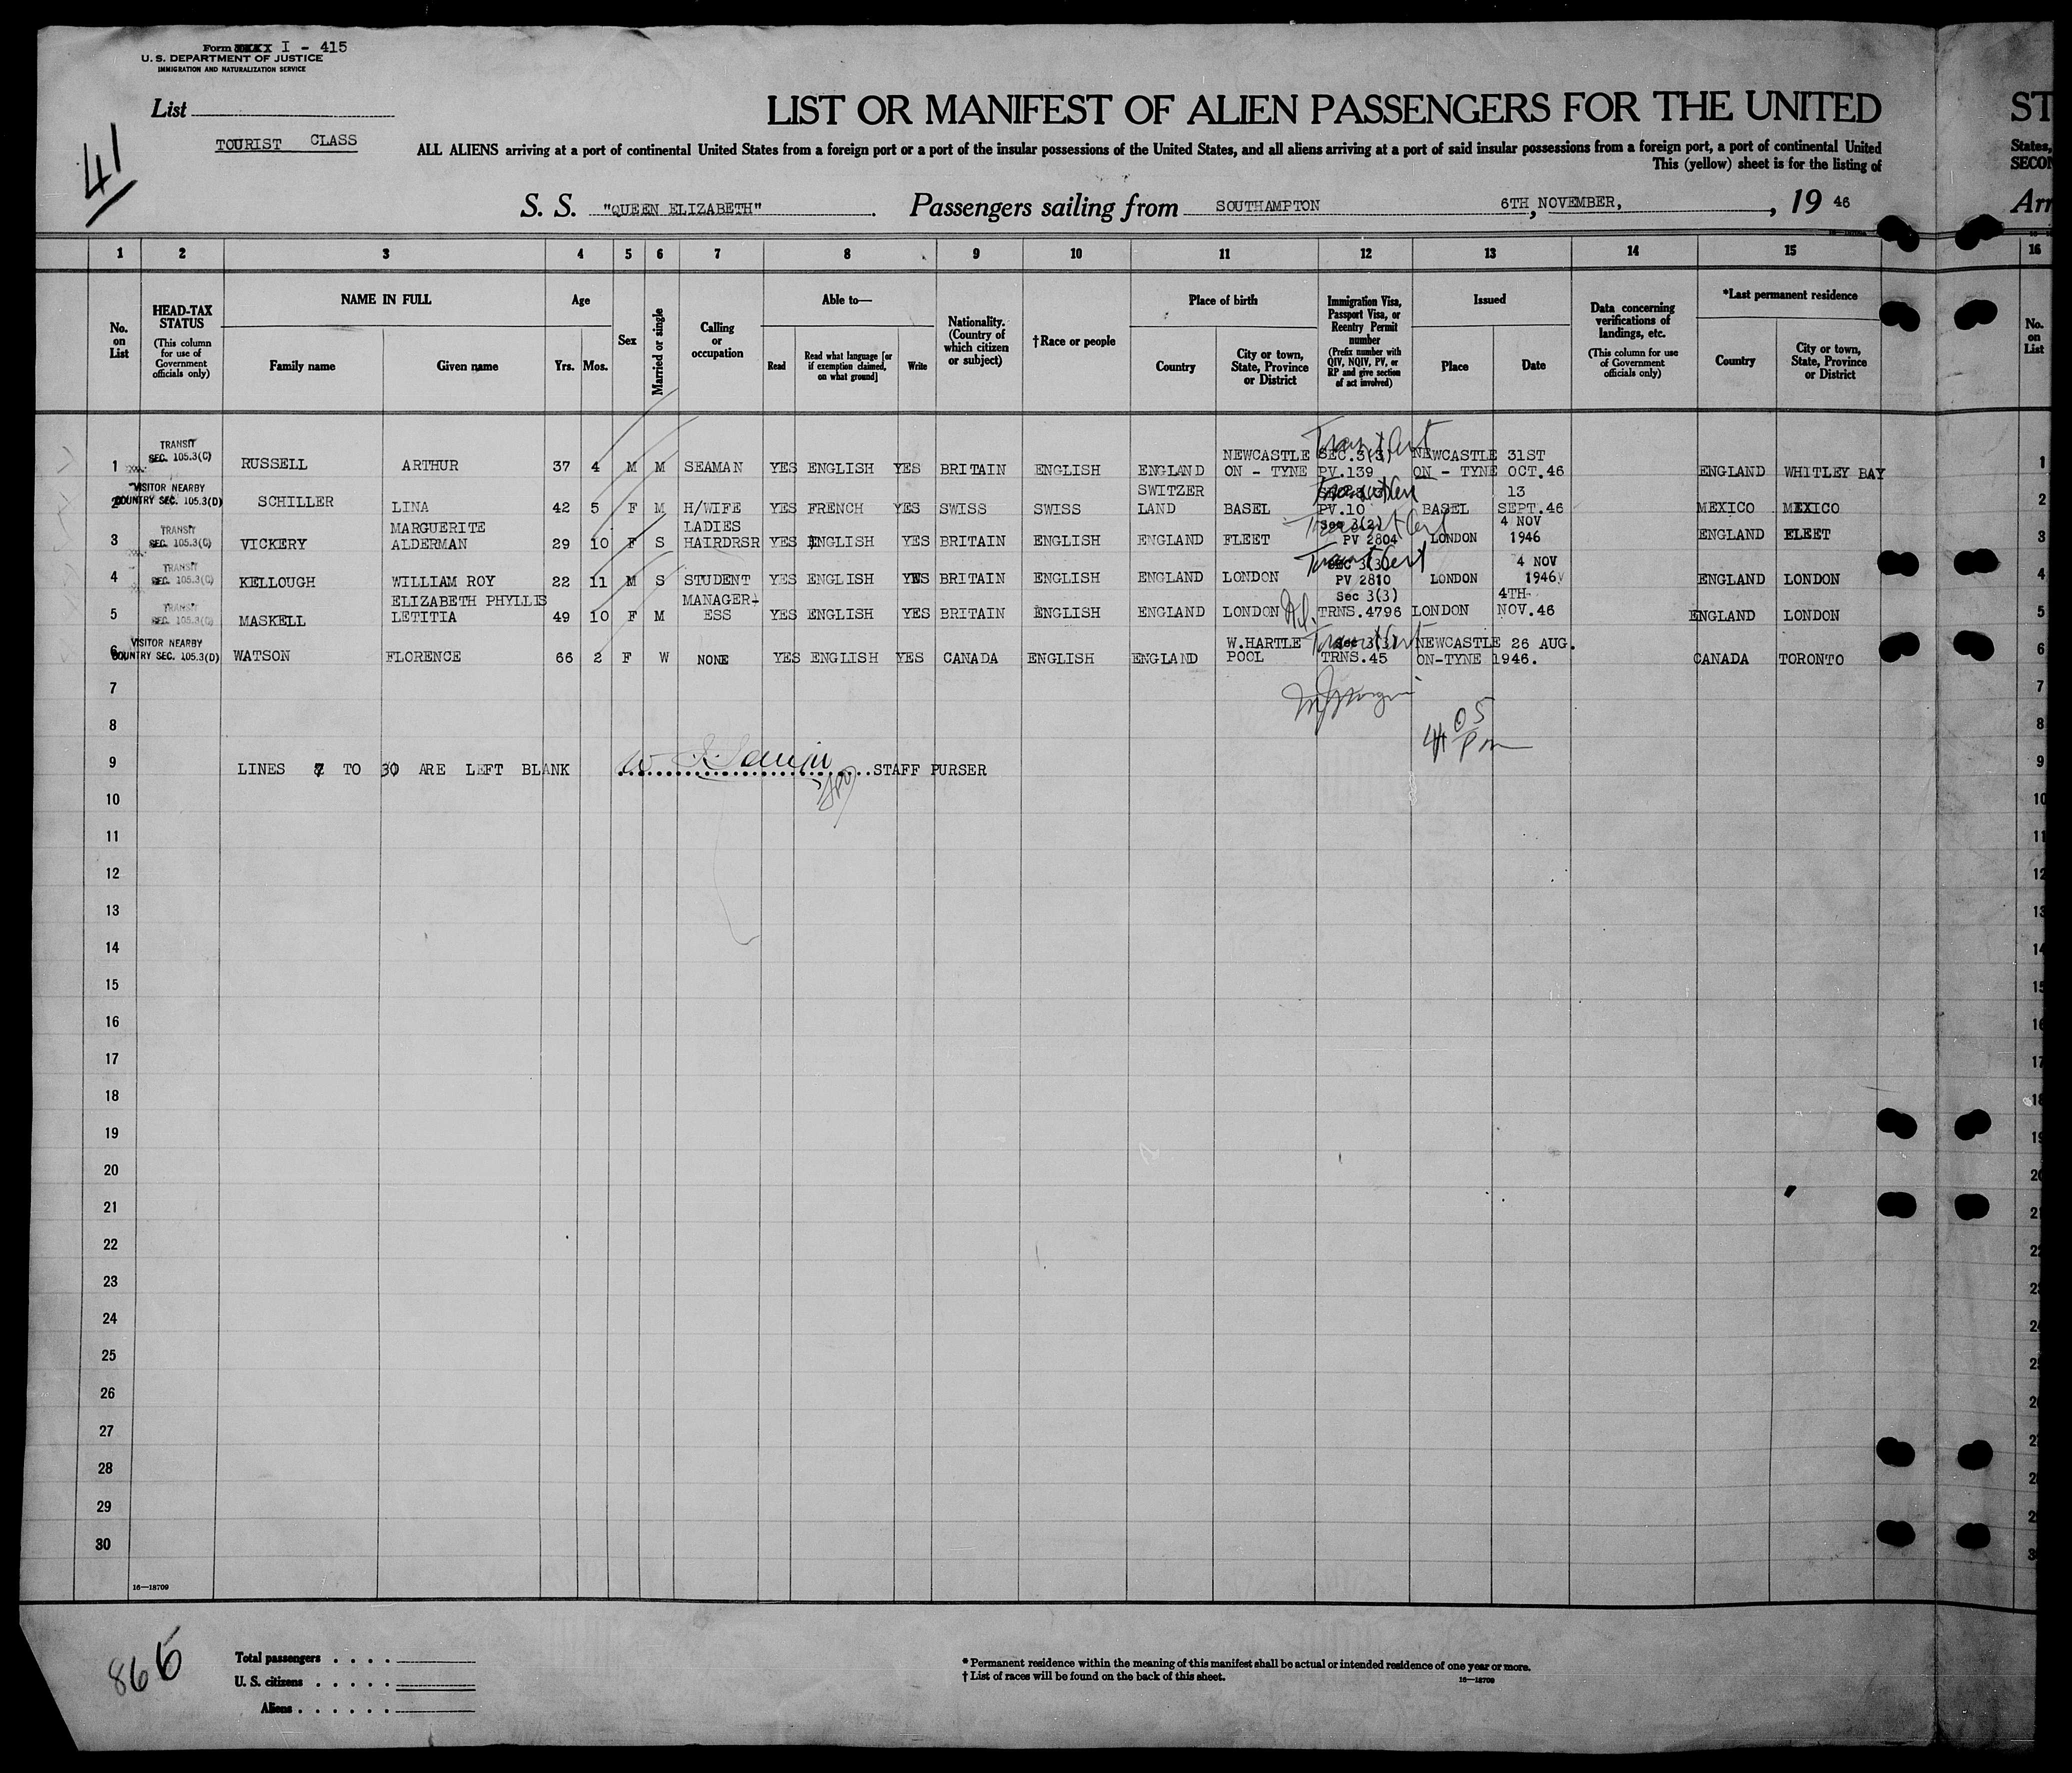 Form I - 415
U. S. DEPARTMENT OF JUSTICE
IMMIGRATION AND NATURALIZATION SERVICE
List
TOURIST CLASS
41
LIST OR MANIFEST OF ALIEN PASSENGERS FOR THE UNITED ST
ALL ALIENS arriving at a port of continental United States from a foreign port or a port of the insular possessions of the United States, and all aliens arriving at a port of said insular possessions from a foreign port, a port of continental United States,
This (yellow) sheet is for the listing of SECON
S. S. "QUEEN ELIZABETH" Passengers sailing from SOUTHAMPTON 6TH NOVEMBER, , 19 46 Arr
1 2 3 4 5 6 7 8 9 10 11 12 13 14 15 16
No. on List
HEAD-TAX STATUS (This column for use of Government officials only)
NAME IN FULL Family name Given name
Age Yrs. Mos.
Sex
Married or single
Calling or occupation
Able to— Read Read what language [or if exemption claimed, on what ground] Write
Nationality. (Country of which citizen or subject)
†Race or people
Place of birth Country City or town, State, Province or District
Immigration Visa, Passport Visa, or Reentry Permit number (Prefix number with QIV, NQIV, PV, or RP and give section of act involved)
Issued Place Date
Data concerning verifications of landings, etc. (This column for use of Government officials only)
*Last permanent residence Country City or town, State, Province or District
No. on List
1 TRANSIT SEC. 105.3(C) RUSSELL ARTHUR 37 4 M M SEAMAN YES ENGLISH YES BRITAIN ENGLISH ENGLAND NEWCASTLE ON - TYNE SEC.3(3) PV.139 NEWCASTLE ON - TYNE 31ST OCT.46 ENGLAND WHITLEY BAY 1
2 VISITOR NEARBY COUNTRY SEC. 105.3(D) SCHILLER LINA 42 5 F M H/WIFE YES FRENCH YES SWISS SWISS SWITZER LAND BASEL PV.10 BASEL 13 SEPT.46 MEXICO MEXICO 2
3 TRANSIT SEC. 105.3(C) VICKERY MARGUERITE ALDERMAN 29 10 F S LADIES HAIRDRSR YES ENGLISH YES BRITAIN ENGLISH ENGLAND FLEET Sec 3(2) PV 2804 LONDON 4 NOV 1946 ENGLAND FLEET 3
4 TRANSIT SEC. 105.3(C) KELLOUGH WILLIAM ROY 22 11 M S STUDENT YES ENGLISH YES BRITAIN ENGLISH ENGLAND LONDON Sec 3(3) PV 2810 LONDON 4 NOV 1946 ENGLAND LONDON 4
5 TRANSIT SEC. 105.3(C) MASKELL ELIZABETH PHYLLIS LETITIA 49 10 F M MANAGER- ESS YES ENGLISH YES BRITAIN ENGLISH ENGLAND LONDON Sec 3(3) TRNS.4796 LONDON 4TH NOV.46 ENGLAND LONDON 5
6 VISITOR NEARBY COUNTRY SEC. 105.3(D) WATSON FLORENCE 66 2 F W NONE YES ENGLISH YES CANADA ENGLISH ENGLAND W.HARTLE POOL Sec 3(3) TRNS.45 NEWCASTLE ON-TYNE 26 AUG. 1946. CANADA TORONTO 6
7 7
8 4 05 Pm 8
9 LINES 7 TO 30 ARE LEFT BLANK STAFF PURSER 9
10 10
11 11
12 12
13 13
14 14
15 15
16 16
17 17
18 18
19 19
20 20
21
22
23
24
25
26
27
28
29
30
16—18709
866
Total passengers . . . .
U. S. citizens . . . . .
Aliens . . . . . .
* Permanent residence within the meaning of this manifest shall be actual or intended residence of one year or more.
† List of races will be found on the back of this sheet.
16—18709